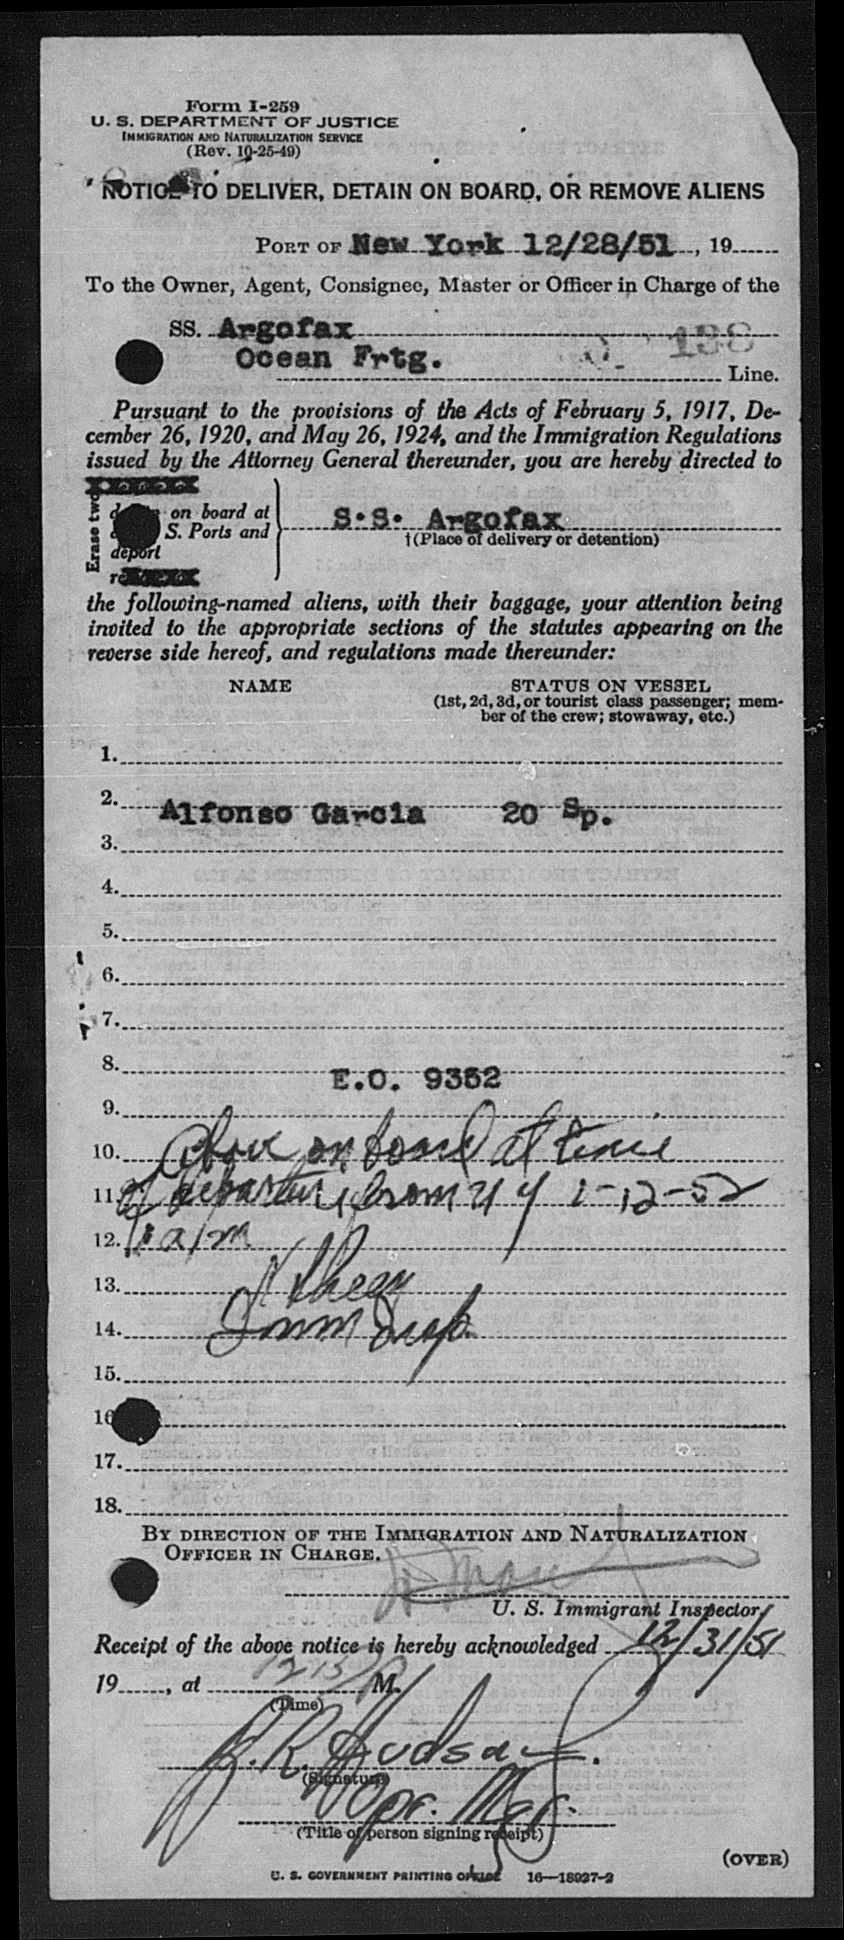 Form I-259
U. S. DEPARTMENT OF JUSTICE
IMMIGRATION AND NATURALIZATION SERVICE
(Rev. 10-25-49)
NOTICE TO DELIVER, DETAIN ON BOARD, OR REMOVE ALIENS
PORT OF New York 12/28/51, 19
To the Owner, Agent, Consignee, Master or Officer in Charge of the
SS. Argofax
Ocean Frtg.
138
Line.
Pursuant to the provisions of the Acts of February 5, 1917, De-
cember 26, 1920, and May 26, 1924, and the Immigration Regulations
issued by the Attorney General thereunder, you are hereby directed to
Erase two
on board at
S. Ports and
deport
S.S. Argofax
†(Place of delivery or detention)
the following-named aliens, with their baggage, your attention being
invited to the appropriate sections of the statutes appearing on the
reverse side hereof, and regulations made thereunder:
NAME STATUS ON VESSEL
(1st, 2d, 3d, or tourist class passenger; mem-
ber of the crew; stowaway, etc.)
1.
2. Alfonso Garcia 20 Sp.
3.
4.
5.
6.
7.
8. E.O. 9352
9.
10. Above on board at time
11. of departure from N Y 1-12-52
12. a/m
13.
14. Imm Insp.
15.
16
17.
18.
BY DIRECTION OF THE IMMIGRATION AND NATURALIZATION
OFFICER IN CHARGE.
U. S. Immigrant Inspector
Receipt of the above notice is hereby acknowledged 12/31/51
19, at 12 15 P M.
(Time)
J. R. Hudson.
(Signature)
Opr. Mgr.
(Title of person signing receipt)
(OVER)
U. S. GOVERNMENT PRINTING OFFICE 16—18927-2